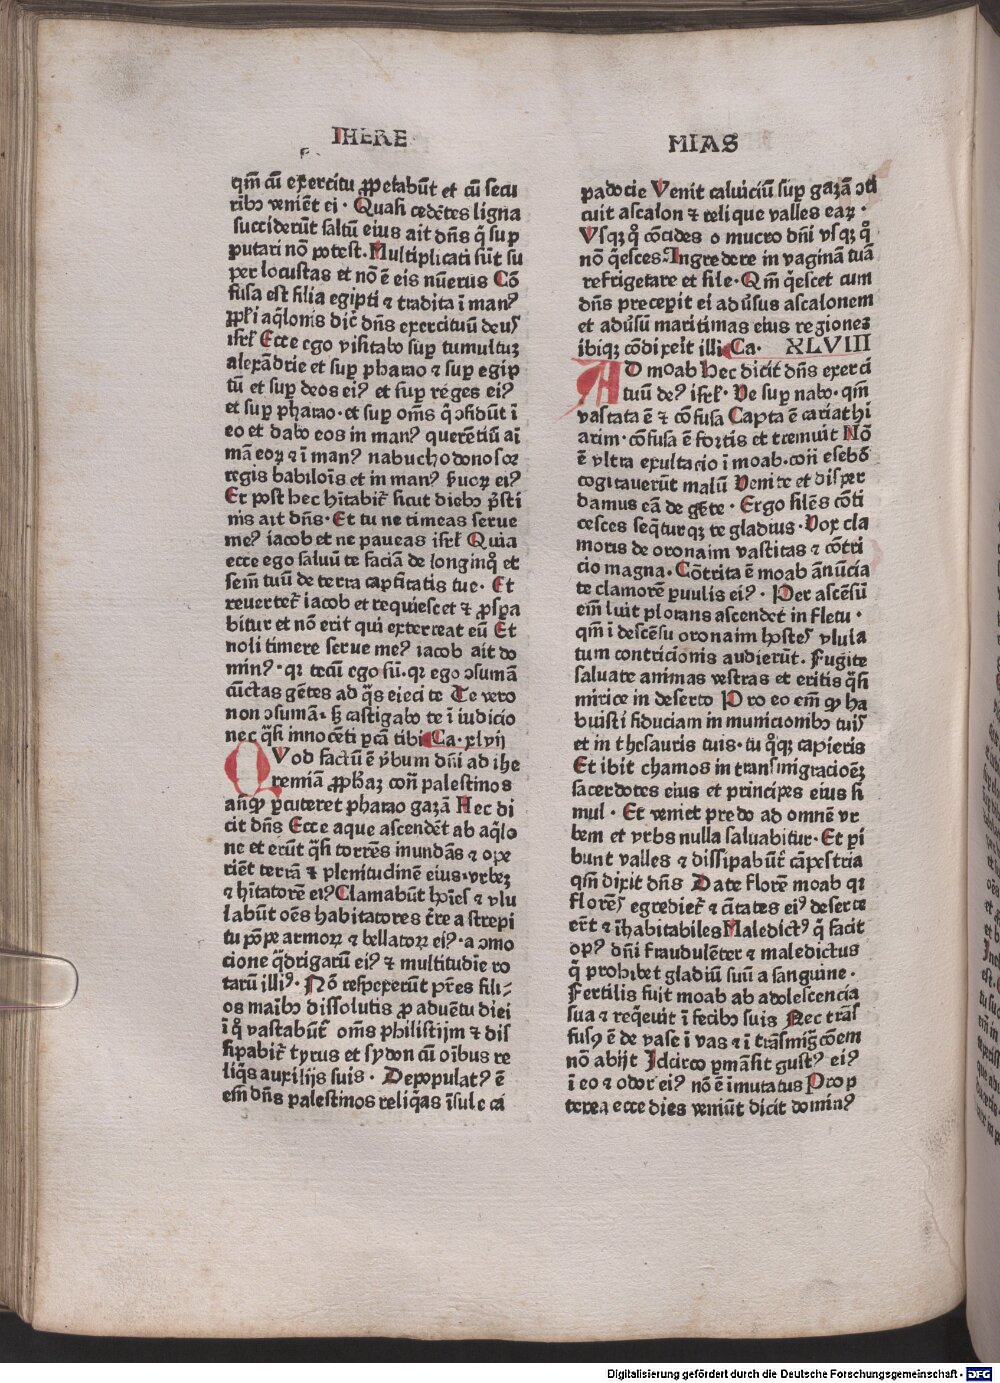 IHERE
MIAS
qm̄ cū exercitu ꝓpetabūt et cū secu
ribꝰ veniēt ei · Quasi cedētes ligna
succiderūt saltū eius ait dn̄s q̄ sup
putari nō potest. Multiplicati sūt su
per locustas et nō ē eis nūerus Cō
fusa est filia egipti ⁊ tradita ī manꝰ
ppl̄i aq̄lonis dic̄ dn̄s exercituū deus
isrl̄ Ecce ego visitabo sup tumultuꝫ
alexādrie et sup pharao ⁊ sup egip
tū et sup deos eiꝰ et sup reges eiꝰ
et sup pharao · et sup om̄s q̄ ↄfidūt ī
eo et dabo eos in manꝰ querētiū aī
mā eoꝝ ⁊ ī manꝰ nabuchodonosor
regis babilōis et in manꝰ ẜuoꝝ eiꝰ
Et post hec hītabit̄ sicut diebꝰ p̄sti
nis ait dn̄s · Et tu ne timeas serue
meꝰ iacob et ne paueas isrl̄ Quia
ecce ego saluū te faciā de longinq̊ et
sem̄ tuū de terra captītatis tue · Et
reuertet̄ iacob et requiescet ⁊ ꝓspa
bitur et nō erit qui exterreat eū Et
noli timere serue meꝰ iacob ait do
minꝰ · qꝛ tecū ego sū. qꝛ ego ↄsumā
cūctas gētes ad q̄s eieci te Te vero
non ↄsumā · sꝫ castigabo te ī iudicio
nec q̄si innocēti pcā tibi Ca · xlvij
QVod factū ē v̄bum dn̄i ad ihe
remiā ꝓph̄aꝫ cōn palestinos
an̄qꝫ pcuteret pharao gazā Hec di
cit dn̄s Ecce aque ascendēt ab aq̄lo
ne et erūt q̄si torrēs inundās ⁊ ope
riēt terrā ⁊ plenitudinē eius · vrbeꝫ
⁊ hītatorē eiꝰ Clamabūt hoīes ⁊ vlu
labūt oēs habitatores t̄re a strepi
tu pōpe armoꝝ ⁊ bellatoꝝ eiꝰ · a ↄmo
cione q̄drigarū eiꝰ ⁊ multitudīe ro
tarū illiꝰ · Nō respexerūt pr̄es fili⸗
os maībꝰ dissolutis ꝓ aduētu diei
ī q̊ vastabūt̄ om̄s philistijm ⁊ dis
sipabit̄ tyrus et sydon cū oībus re
liq̄s auxilijs suis · Depopulatꝰ ē
em̄ dn̄s palestinos reliq̄as īsule ca
padocie Venit caluiciū sup gazā ↄti
cuit ascalon ⁊ relique valles eaꝝ ·
Vsqꝫ q̊ cōcides o mucro dn̄i vsqꝫ q̊
nō q̄esces · Ingredere in vaginā tuā
refrigerare et sile · Qm̄ q̄escet cum
dn̄s preceperit ei aduīsus ascalonem
et adūsū maritimas eius regiones
ibiqꝫ cōdixeit illi Ca · XLVIII
AD moab Hec dicit dn̄s exerci
tuū deꝰ isrl̄ · Ve sup nabo · qm̄
vastata ē ⁊ cōfusa Capta ē cariathi
arim · cōfusa ē fortis et tremuit Nō
ē vltra exultacio ī moab · cōn esebō
cogitauerūt malū Venite et disper
damus eā de gēte · Ergo silēs cōti
cesces seq̄turqꝫ te gladius · Vox cla
moris de oronaim vastitas ⁊ cōtri
cio magna · Cōtrita ē moab ānūcia
te clamorē puulis eiꝰ · Per ascēsū
em̄ luit plorans ascendet in fletu ·
qm̄ ī descēsu oronaim hostes vlula
tum contricionis audierūt. Fugite
saluate animas vestras et eritis q̄si
mirice in deserto Pro eo em̄ qꝫ ha
buisti fiduciam in municionibꝰ tuis
et in thesauris tuis · tu q̊qꝫ capieris
Et ibit chamos in transmigracioēꝫ
sacerdotes eius et principes eius si
mul · Et veniet predo ad omnē vr
bem et vrbs nulla saluabitur · Et pi
bunt valles ⁊ dissipabūt̄ cāpestria
qm̄ dixit dn̄s Date florē moab qꝛ
florēs egrediet̄ ⁊ cītates eiꝰ deserte
ert̄ ⁊ īhabitabiles Maledictꝰ q̄ facit
opꝰ dn̄i fraudulēter ⁊ maledictus
q̄ prohibet gladiū suū a sanguine ·
Fertilis fuit moab ab adolescencia
sua ⁊ req̄euit ī fecibꝰ suis Nec trās
fusꝰ ē de vase ī vas ⁊ ī trāsmig̅cōem
nō abijt Idcirco pmāsit gustꝰ eiꝰ
ī eo ⁊ odor eiꝰ nō ē īmutatus Prop
terea ecce dies veniūt dicit dominꝰ
Digitalisierung gefördert durch die Deutsche Forschungsgemeinschaft - DFG